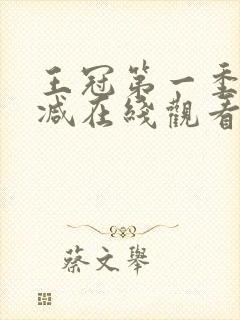 王冠第一季
减在线觀看
蔡文舉